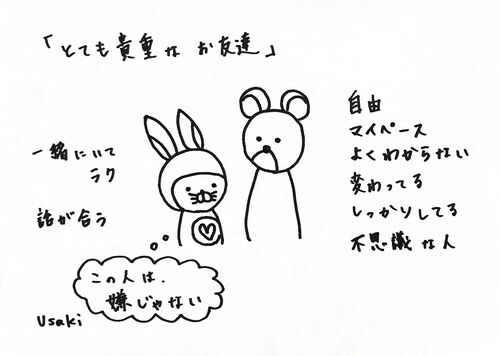 「とても貴重な お友達」
一緒にいて
ラク
話が合う
自由
マイペース
よくわからない
変わってる
しっかりしてる
不思議な人
この人は、
嫌じゃない
Usaki